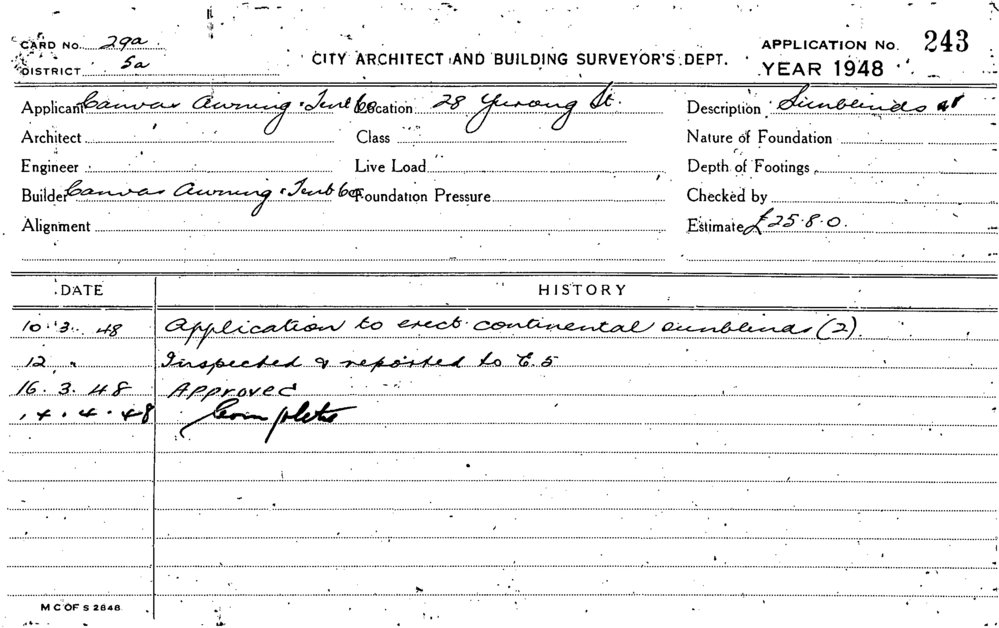 CARD No. 29a.
DISTRICT 5a
CITY ARCHITECT AND BUILDING SURVEYOR'S DEPT.
APPLICATION No. 243
YEAR 1948
Applicant Canvas Awning & Tent Co Location 28 Yurong St. Description Sunblinds
Architect Class Nature of Foundation
Engineer Live Load Depth of Footings
Builder Canvas Awning & Tent Co Foundation Pressure Checked by
Alignment Estimate £25.8.0.
DATE HISTORY
10.3.48 Application to erect continental sunblinds (2).
12 " Inspected & reported to E.5
16.3.48 Approved
4.48 Complete
M C OF S 2848